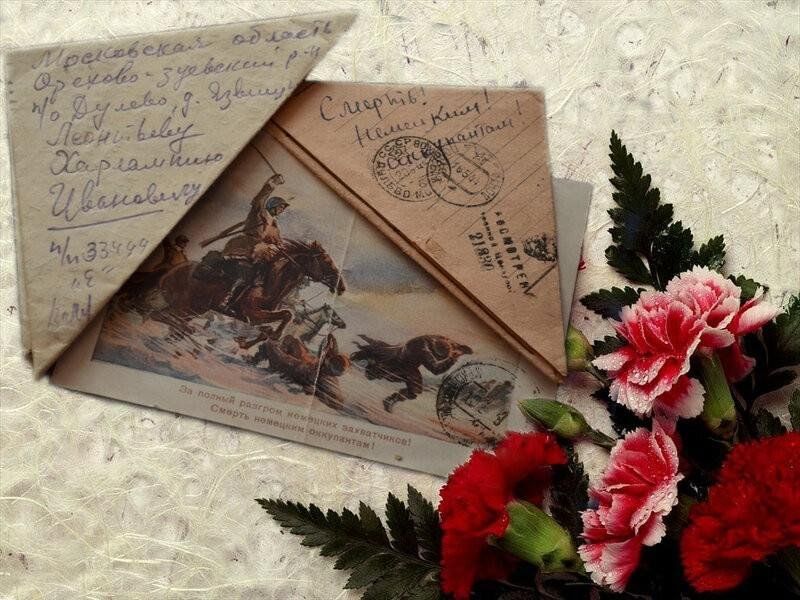 Московская область
Орехово-Зуевский р-н
п/о Дулево, д. Язвищи
Леонтьеву
Харлампию
Ивановичу
п/п 33499
"Е"
Смерть!
Немецким!
оккупантам!
ПРОСМОТРЕНО
Военной Цензурой
21830
За полный разгром немецких захватчиков!
Смерть немецким оккупантам!